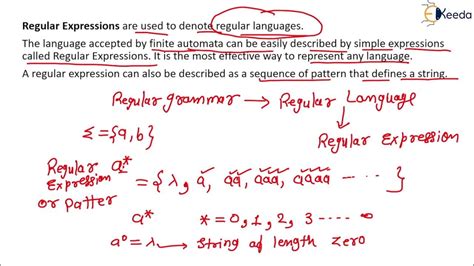 Ekeeda
Regular Expressions are used to denote regular languages.
The language accepted by finite automata can be easily described by simple expressions
called Regular Expressions. It is the most effective way to represent any language.
A regular expression can also be described as a sequence of pattern that defines a string.
Regular grammar → Regular Language
Σ = {a,b}
Regular Expression
Regular Expression or Patter
a* = {λ, a, aa, aaa, aaaa ---- }
a* * = 0, 1, 2, 3 ---- 
a⁰ = λ → String of length zero